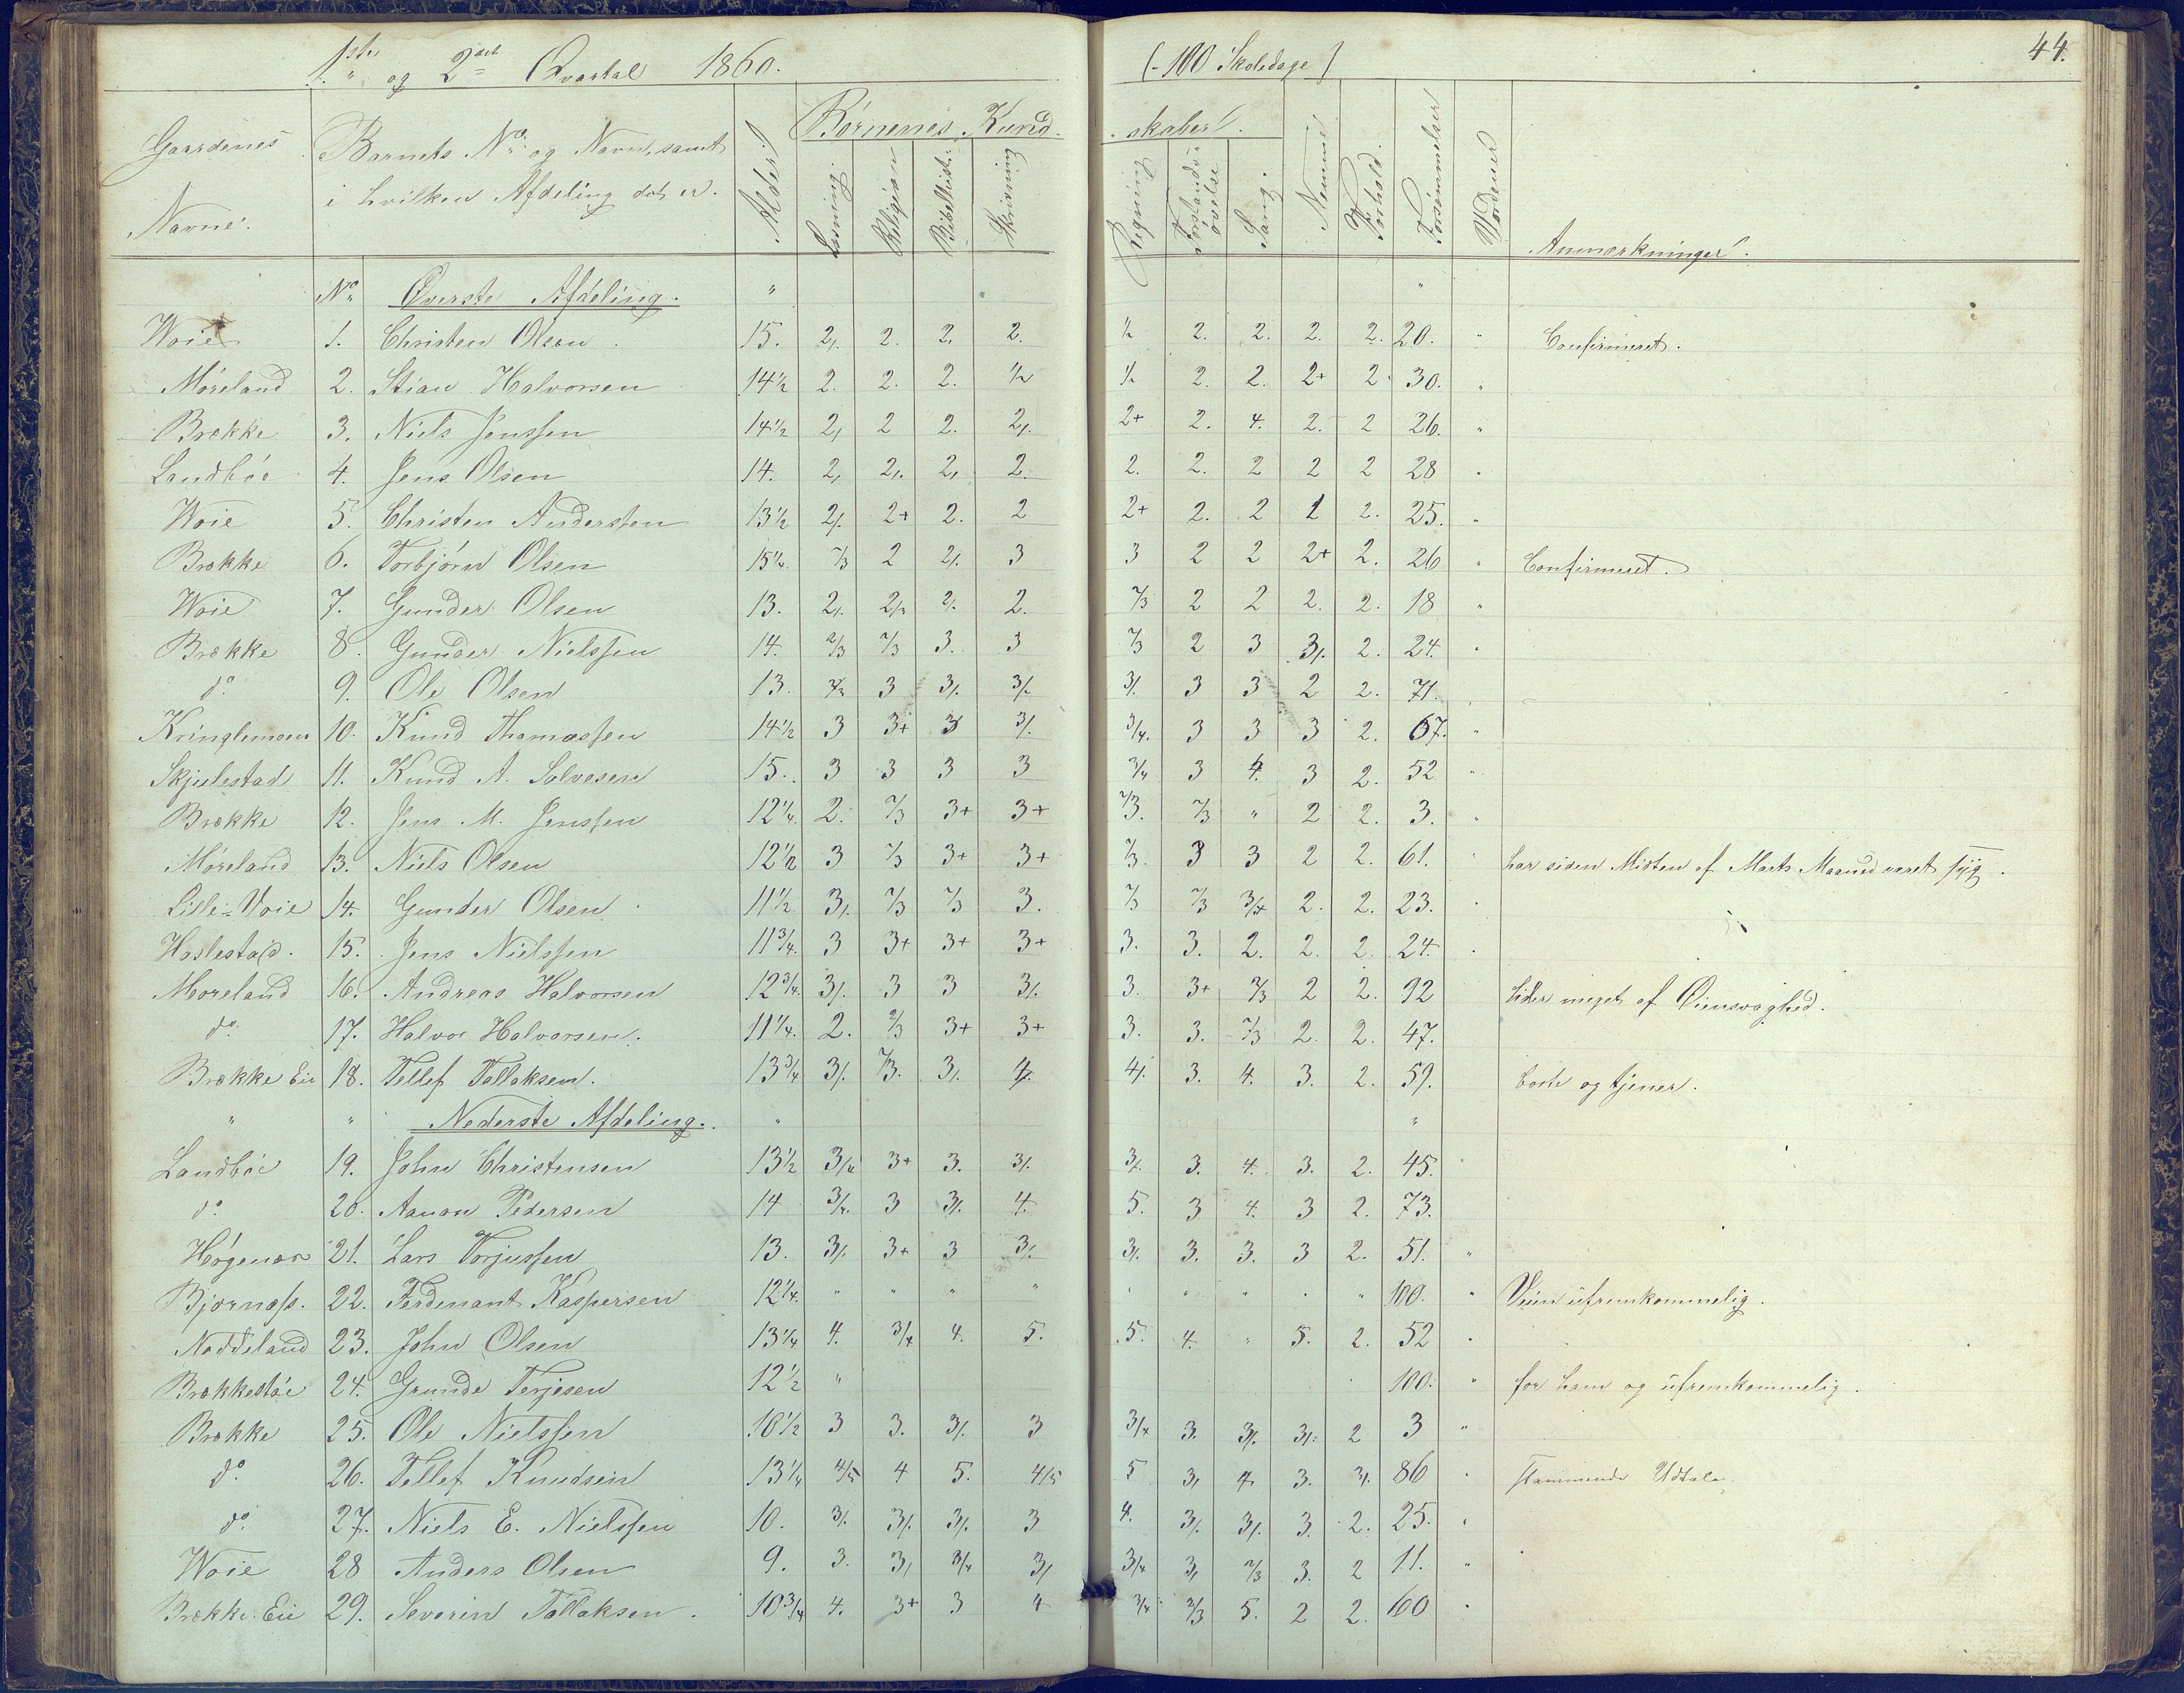 1ste og 2det Qvartal 1860. (- 100 Skoledage) 44.
Gaardenes Navne. Barnets No. og Navn, samt i hvilken Afdeling det er. Alder. Børnenes Kundskaber. Læsning Religion Bibelhist: Skrivning Regning Forstandsøvelse Sang. Nemme Forhold. Forsømmelser Anmærkninger.
No. Øverste Afdeling. "
Woie 1. Christen Olsen. 15. 2, 2. 2. 2. ½ 2. 2. 2. 2. 20. " Confirmeret.
Møreland 2. Stian Halvorsen 14½ 2. 2. 2. ½ ½ 2. 2. 2+ 2. 30. "
Brække 3. Niels Jensſen 14½ 2, 2 2. 2/. 2+ 2. 4. 2. 2 26. "
Landbøe 4. Jens Olsen 14. 2, 2/. 2, 2. 2. 2. 2 2 2 28 "
Woie 5. Christen Andersſen 13½ 2/. 2+ 2. 2 2+ 2. 2 1 2. 25. "
Brække 6. Torbjørn Olsen 15¼ 2/3 2 2/. 3 3 2 2 2+ 2. 26 " Confirmeret.
Woie 7. Gunder Olsen 13. 2/. 2/3 2/. 2. 2/3 2 2 2. 2. 18 "
Brække 8. Gunder Nielsſen 14. 2/3 2/3 3. 3 2/3 2 3 3/. 2. 24. "
do. 9. Ole Olsen 13. 3 3/. 3/. 3/. 3 3 2 2. 71.
Kringlemoen 10. Knud Thomasſen 14½ 3 3+ 3 3/. 3/4. 3 3 3 2. 67. "
Skjulestad 11. Knud A. Solvesen 15. 3 3 3 3 3/4 3 4. 3 2. 52 "
Brække 12. Jens M. Jensſen 12¼ 2. 2/3 3+ 3+ 2/3. 2/3 " 2 2. 3. "
Møreland 13. Niels Olsen 12½ 3 2/3 3+ 3+ 2/3. 3 3 2 2. 61. " har siden Midten af Marts Maaned været syg.
Lille-Voie 14. Gunder Olsen 11½ 3/. 2/3 2/3 3. 2/3 2/3 3/4 2. 2. 23. "
Haslestad. 15. Jens Nielsſen 11¾ 3 3+ 3+ 3+ 3. 3. 2. 2. 2. 24. "
Møreland 16. Andreas Halvorsen 12¾ 3/. 3 3 3/. 3. 3+ 2/3 2 2. 92 lider meget af Øiensvaghed.
do. 17. Halvor Halvorsen. 11¼. 2. 2/3 3+ 3+ 3. 3. 2/3 2. 2. 47.
Brække Eie 18. Tellef Tallaksen. 13¾ 3/. 2/3. 3/. 4. 4/. 3. 4. 3. 2. 59. borte og tjener.
" " Nederste Afdeling. " "
Landbøe 19. John Christensen 13½ 3/4 3+ 3. 3/. 3/. 3. 4. 3. 2. 45.
do. 20. Aanon Pedersen 14 3/4. 3 3/. 4. 5. 3 4. 3 2. 73.
Høgenæs 21. Lars Torjusſen 13. 3/. 3+ 3 3/. 3/. 3. 3. 3 2. 51. "
Bjørnæſs. 22. Ferdenant Kaspersen 12¼. " " " " " " " " " 100. " Veien ufremkommelig.
Noddeland 23. John Olsen 13¼ 4. 3/4 4. 5. 5. 4. " 5. 2. 52 "
Brækkestøe 24. Grunde Terjesen 12½ " 100. " for ham og ufremkommelig.
Brække 25. Ole Nielsſen 10½ 3 3. 3/. 3 3/4 3. 3/. 3/. 2 3 "
do. 26. Tellef Knudsen 13¼ 4/5 4 5. 4/5 5 3, 4 3. 3/. 86 " stammende Udtale.
do. 27. Niels E. Nielsſen 10. 3/. 3/. 3/. 3 4. 3/. 3/. 3. 2. 25. "
Woie 28 Anders Olsen 9. 3. 3, 3/4 3, 3/4 3, 2/3 3. 2 11. "
Brække Eie 29. Severin Tallaksen. 10¾ 4. 3+ 3 4 3/4 2/3 5. 2 2. 60 "